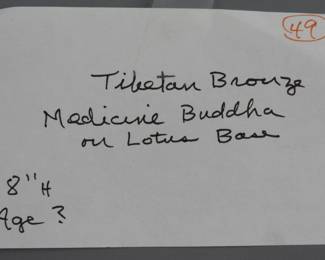 49
Tibetan Bronze
Medicine Buddha
on Lotus Base
8" H
Age ?